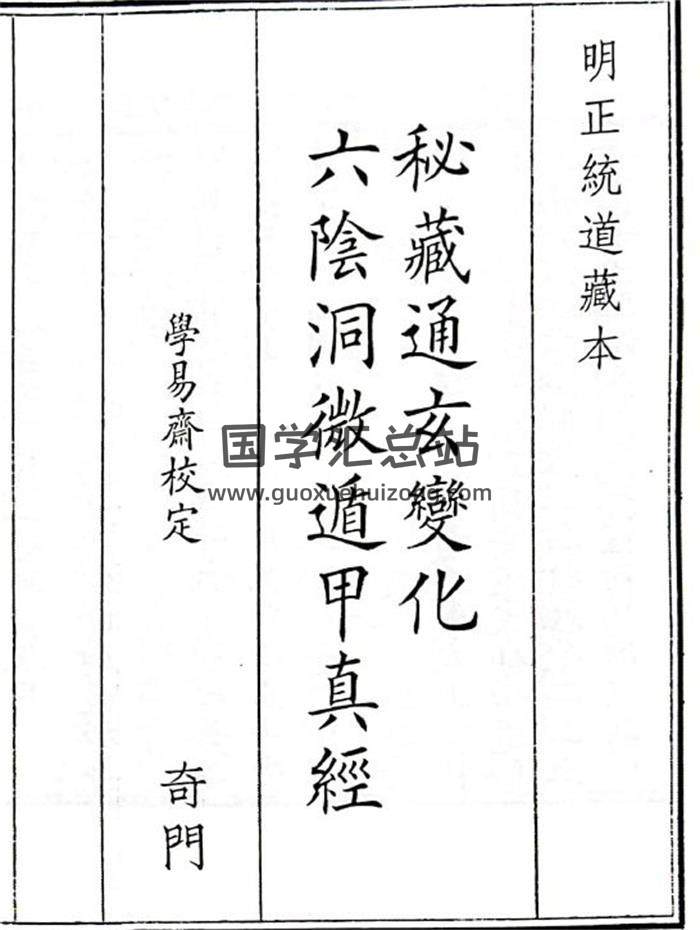 明正統道藏本
秘藏通玄變化
六陰洞微遁甲真經
學易齋校定
奇門
国学汇总站
www.guoxuehuizong.com